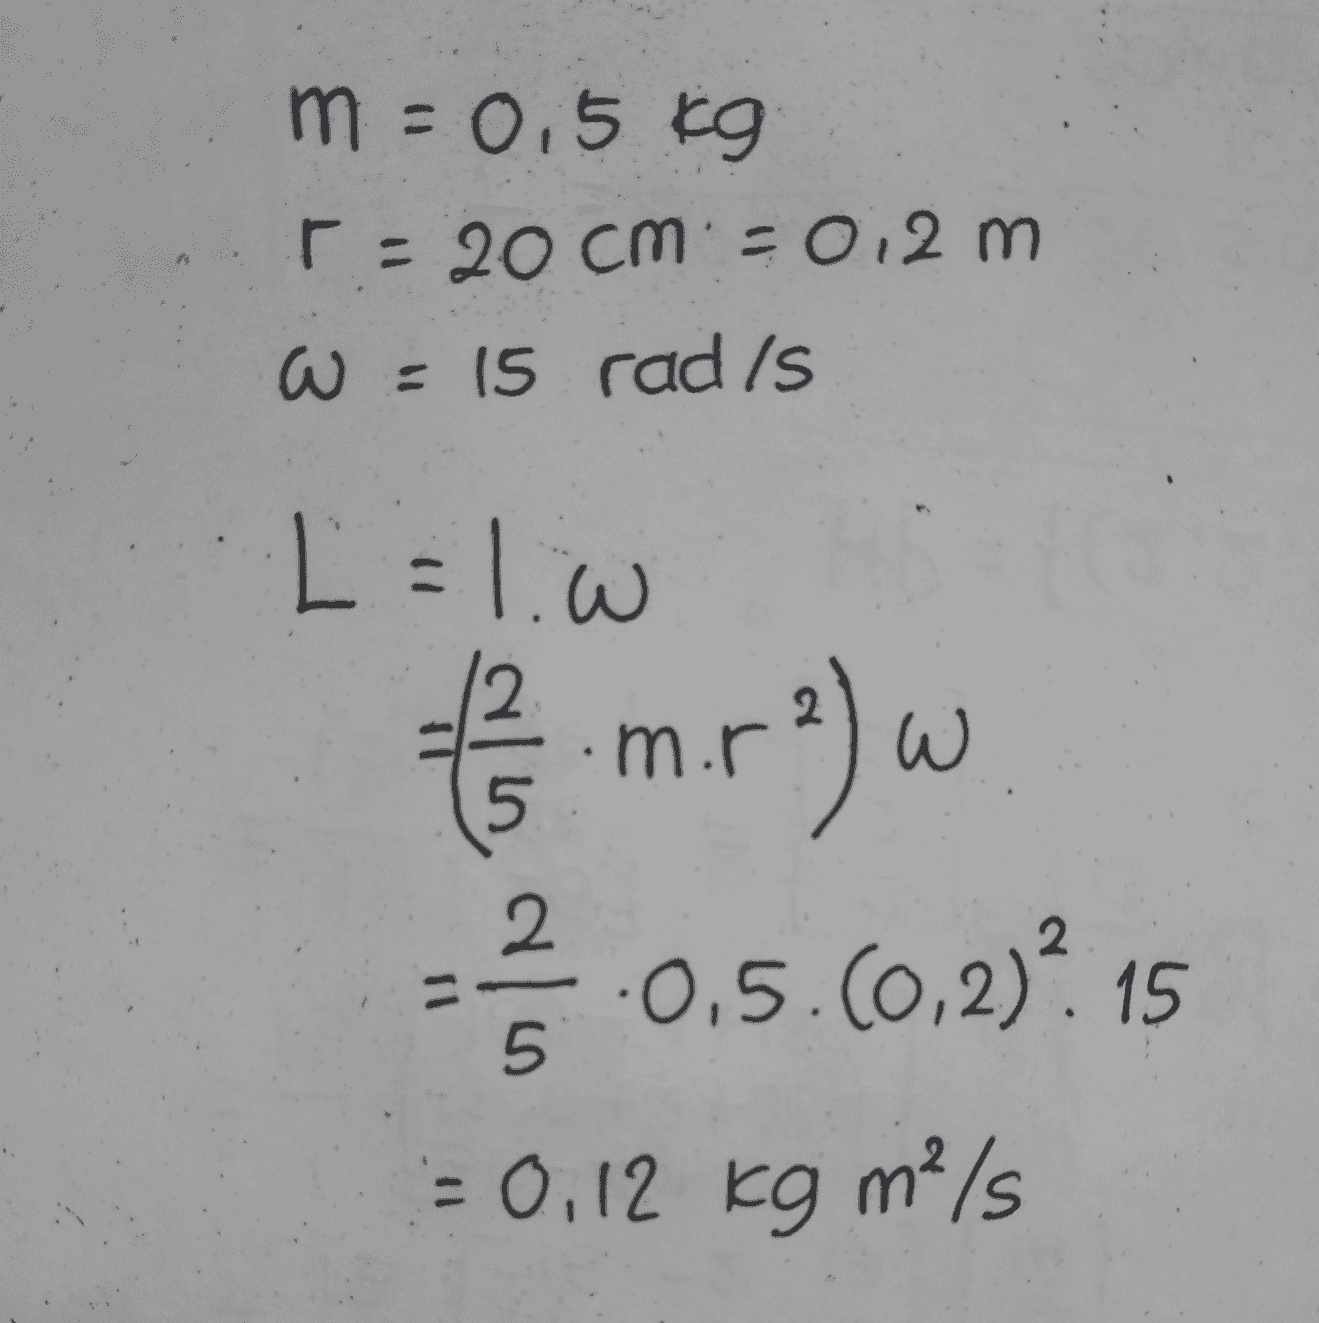 m = 0,5 kg
r = 20 cm = 0,2 m
ω = 15 rad/s
L = I . ω
= (2/5 · m . r²) ω
= 2/5 · 0,5 . (0,2)² . 15
= 0,12 kg m²/s